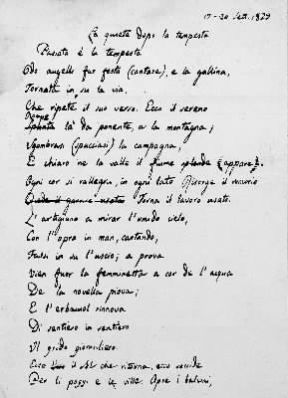 17-20 Sett. 1829
La quiete dopo la tempesta
Passata è la tempesta
Odo augelli far festa (cantare), e la gallina,
Tornata in su la via,
Che ripete il suo verso. Ecco il sereno
Rompe
là da ponente, a la montagna;
Sgombrasi (spacciasi) la campagna,
E chiaro ne la valle il fiume splende (appare).
Ogni cor si rallegra, in ogni lato Risorge il romorio
Torna il lavoro usato.
L'artigiano a mirar l'umido cielo,
Con l'opra in man, cantando,
Fassi in su l'uscio; a prova
Vien fuor la femminetta a cor de l'acqua
De la novella piova;
E l'erbaiuol rinnova
Di sentiero in sentiero
Il grido giornaliero.
Ecco il Sol che ritorna, ecco sorride
Per li poggi e le ville. Apre i balconi,